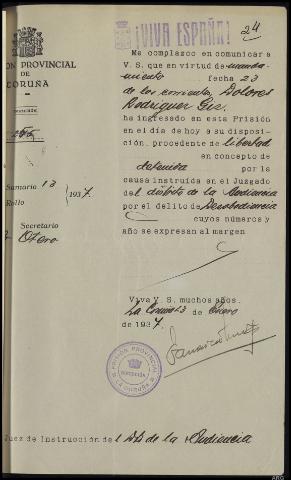 ¡VIVA ESPAÑA!
24
Me complazco en comunicar a
V. S. que en virtud de manda-
miento fecha 23
de los corrientes, Dolores
Rodriguez
ha ingresado en esta Prisión
en el día de hoy a su disposi-
ción, procedente de libertad
en concepto de
detenida por la
causa instruída en el Juzgado
del distrito de la Audiencia
por el delito de Desobediencia
cuyos números y
año se expresan al margen
Viva V. S. muchos años.
La Coruña 23 de Enero
de 1937
ION PROVINCIAL
DE
CORUÑA
Sumario 13
Rollo
/ 1937.
Secretario
Otero
PRISIÓN PROVINCIAL
LA CORUÑA
Juez de Instrucción del de la Audiencia
ARG